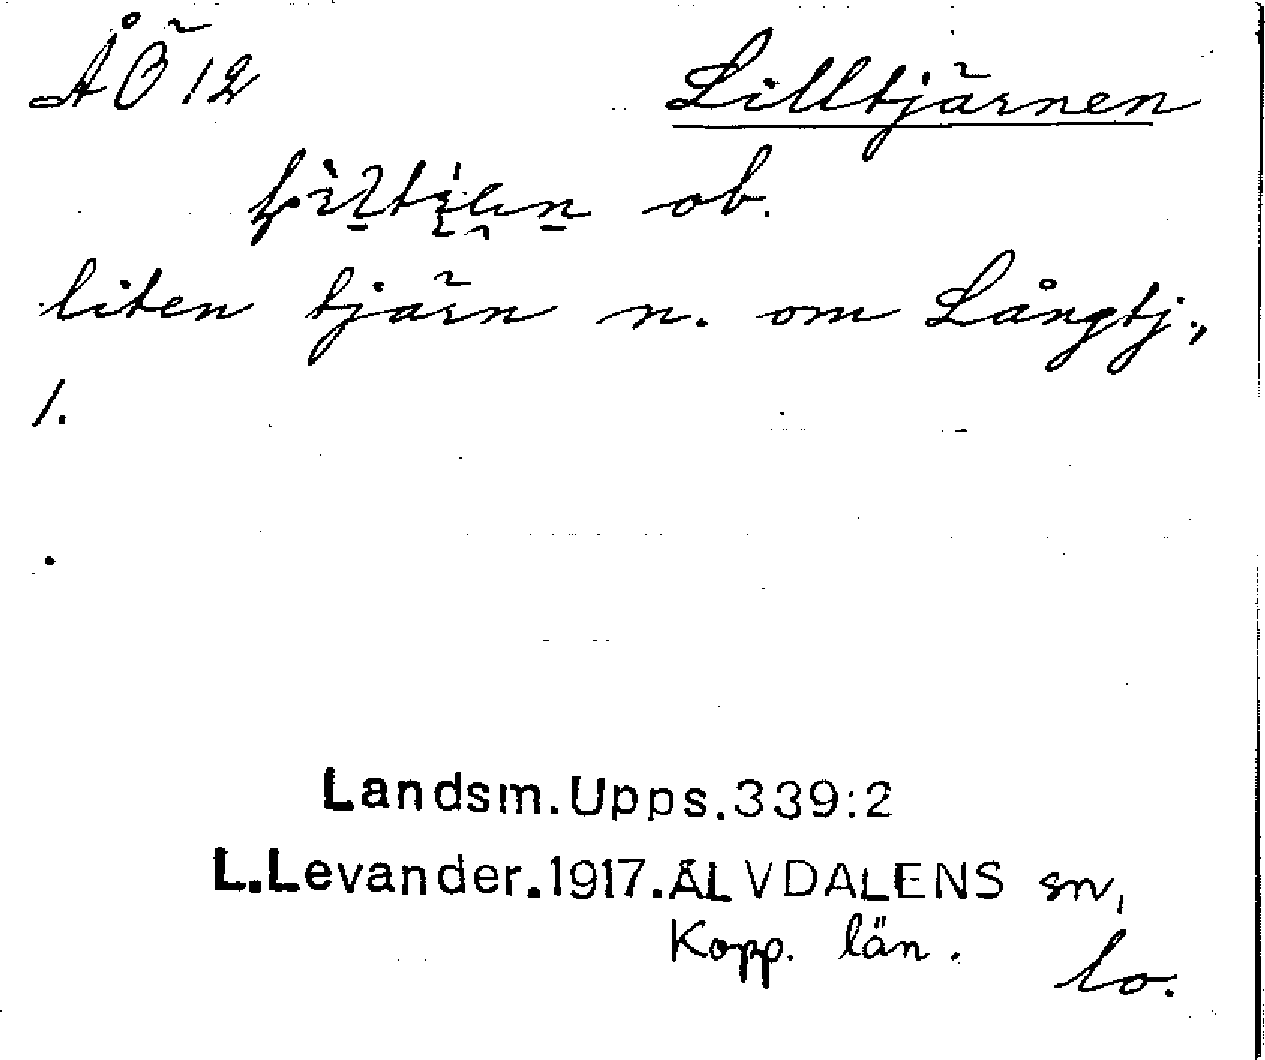 ÅÖ 12 Lilltjärnen
ob.
liten tjärn n. om Långtj.,
1.
Landsm.Upps.339:2
L.Levander.1917.ÄLVDALENS sn,
Kopp. län.
lo.